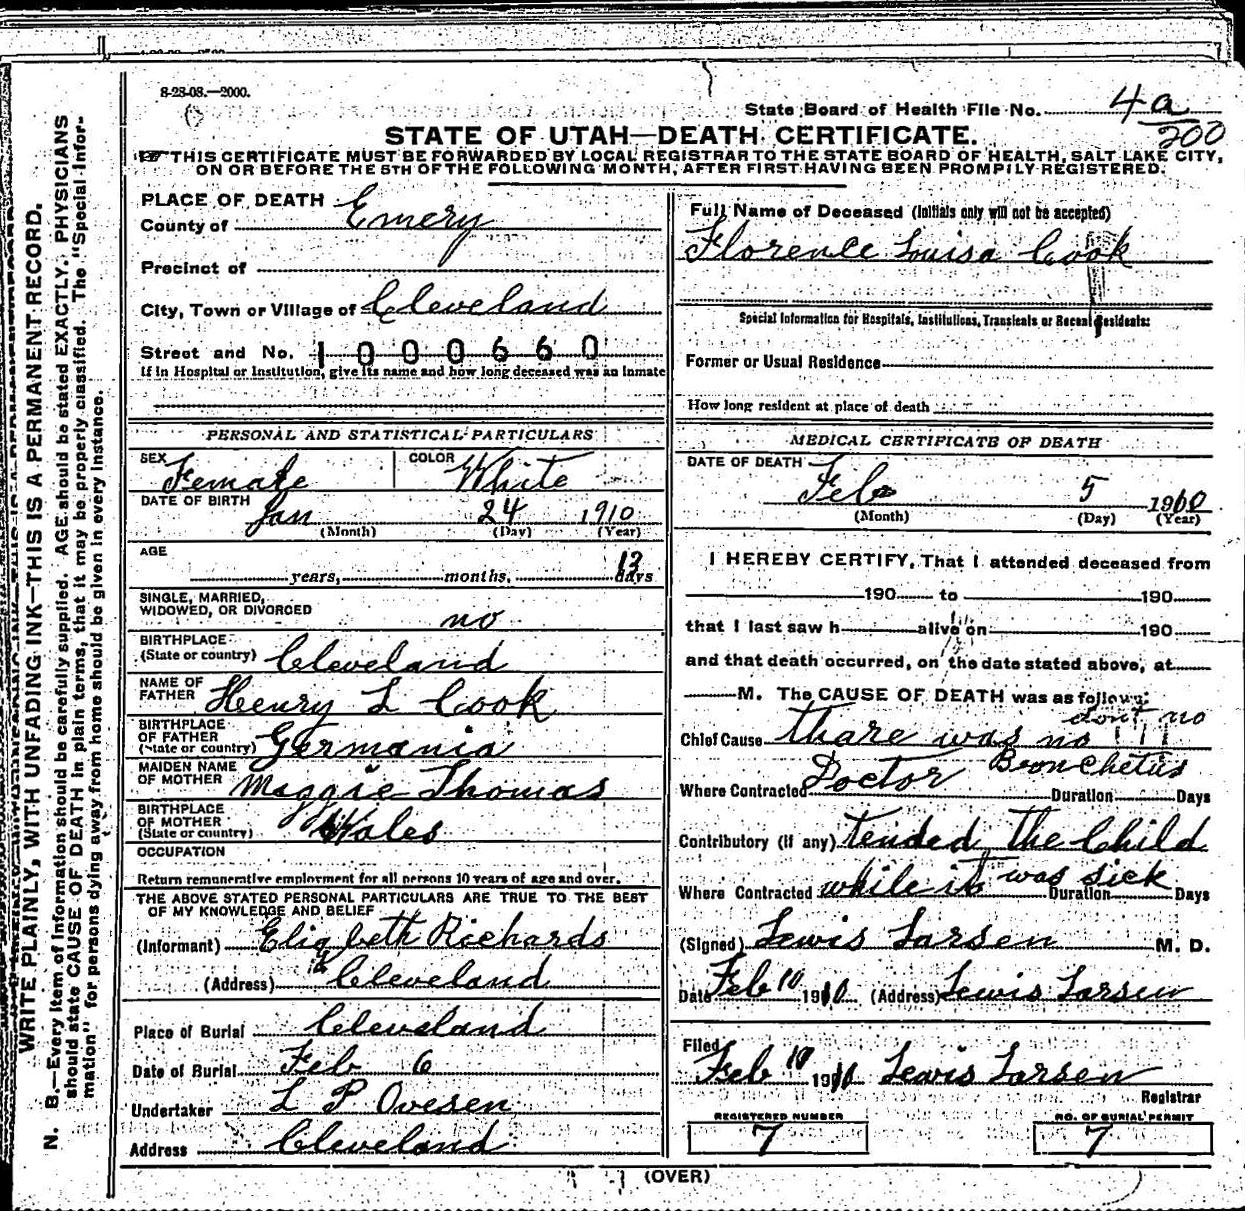 8-28-08.—2000.
State Board of Health File No. 4a
200
STATE OF UTAH—DEATH CERTIFICATE.
THIS CERTIFICATE MUST BE FORWARDED BY LOCAL REGISTRAR TO THE STATE BOARD OF HEALTH, SALT LAKE CITY,
ON OR BEFORE THE 5TH OF THE FOLLOWING MONTH, AFTER FIRST HAVING BEEN PROMPTLY REGISTERED.
WRITE PLAINLY, WITH UNFADING INK—THIS IS A PERMANENT RECORD.
N. B.—Every item of information should be carefully supplied. AGE should be stated EXACTLY. PHYSICIANS
should state CAUSE OF DEATH in plain terms, that it may be properly classified. The "Special Infor-
mation" for persons dying away from home should be given in every instance.
PLACE OF DEATH
County of Emery
Precinct of
City, Town or Village of Cleveland
Street and No. 1000660
If in Hospital or Institution, give its name and how long deceased was an inmate
PERSONAL AND STATISTICAL PARTICULARS
SEX Female COLOR White
DATE OF BIRTH Jan 24 1910
(Month) (Day) (Year)
AGE
years, months, 13 days
SINGLE, MARRIED,
WIDOWED, OR DIVORCED no
BIRTHPLACE
(State or country) Cleveland
NAME OF
FATHER Henry L Cook
BIRTHPLACE
OF FATHER
(State or country) Germania
MAIDEN NAME
OF MOTHER Maggie Thomas
BIRTHPLACE
OF MOTHER
(State or country) Wales
OCCUPATION
Return remunerative employment for all persons 10 years of age and over.
THE ABOVE STATED PERSONAL PARTICULARS ARE TRUE TO THE BEST
OF MY KNOWLEDGE AND BELIEF
(Informant) Elizabeth Richards
(Address) Cleveland
Place of Burial Cleveland
Date of Burial Feb 6
Undertaker L P Ovesen
Address Cleveland
Full Name of Deceased (Initials only will not be accepted)
Florence Louisa Cook
Special Information for Hospitals, Institutions, Transients or Recent Residents:
Former or Usual Residence
How long resident at place of death
MEDICAL CERTIFICATE OF DEATH
DATE OF DEATH
Feb 5 1910
(Month) (Day) (Year)
I HEREBY CERTIFY, That I attended deceased from
190 to 190
that I last saw h alive on 190
and that death occurred, on the date stated above, at
M. The CAUSE OF DEATH was as follows:
dont no
Chief Cause thare was no
Bronchetus
Where Contracted Doctor Duration Days
Contributory (if any) tended the Child
Where Contracted while it was sick Duration Days
(Signed) Lewis Larsen M. D.
Date Feb 10 1910 (Address) Lewis Larsen
Filed
Feb 10 1910 Lewis Larsen
Registrar
REGISTERED NUMBER
7
NO. OF BURIAL PERMIT
7
(OVER)